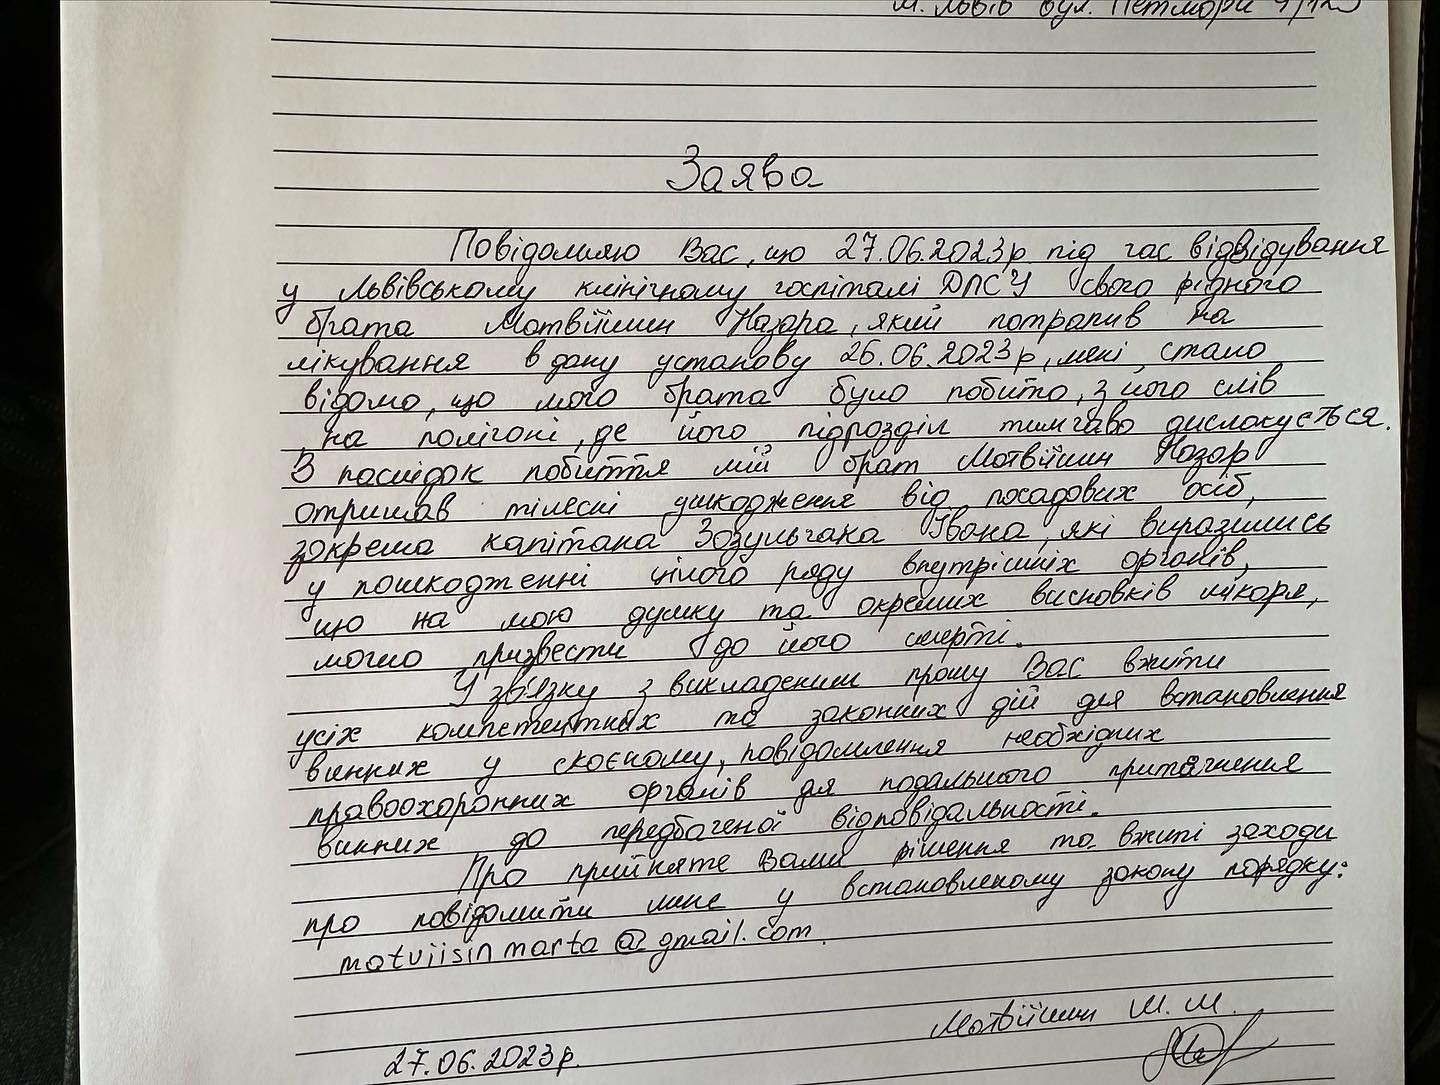 м. Львів вул.
Заява
Повідомляю Вас, що 27.06.2023р під час відвідування
у Львівському клінічному госпіталі ДПСУ свого рідного
брата Матвіїшин Назара, який потрапив на
лікування в дану установу 26.06.2023р, мені стало
відомо, що мого брата було побито, з його слів
на полігоні, де його підрозділ тимчаво дислокується.
В наслідок побиття мій брат Матвіїшин Назар
отримав тілесні ушкодження від посадових осіб,
зокрема капітана Зозульчака Івана, які виразились
у пошкодженні цілого ряду внутрішніх органів,
що на мою думку та окремих висновків лікаря,
могло призвести до його смерті.
У зв'язку з викладеним прошу Вас вжити
усіх компетентних та законних дій для встановлення
винних у скоєному, повідомлення необхідних
правоохоронних органів для подальшого притягнення
винних до передбаченої відповідальності.
Про прийняте Вами рішення та вжиті заходи
про повідомити мене у встановленому закону порядку:
matviisinmarta@gmail.com.
Матвіїшин М. М.
27.06.2023р.